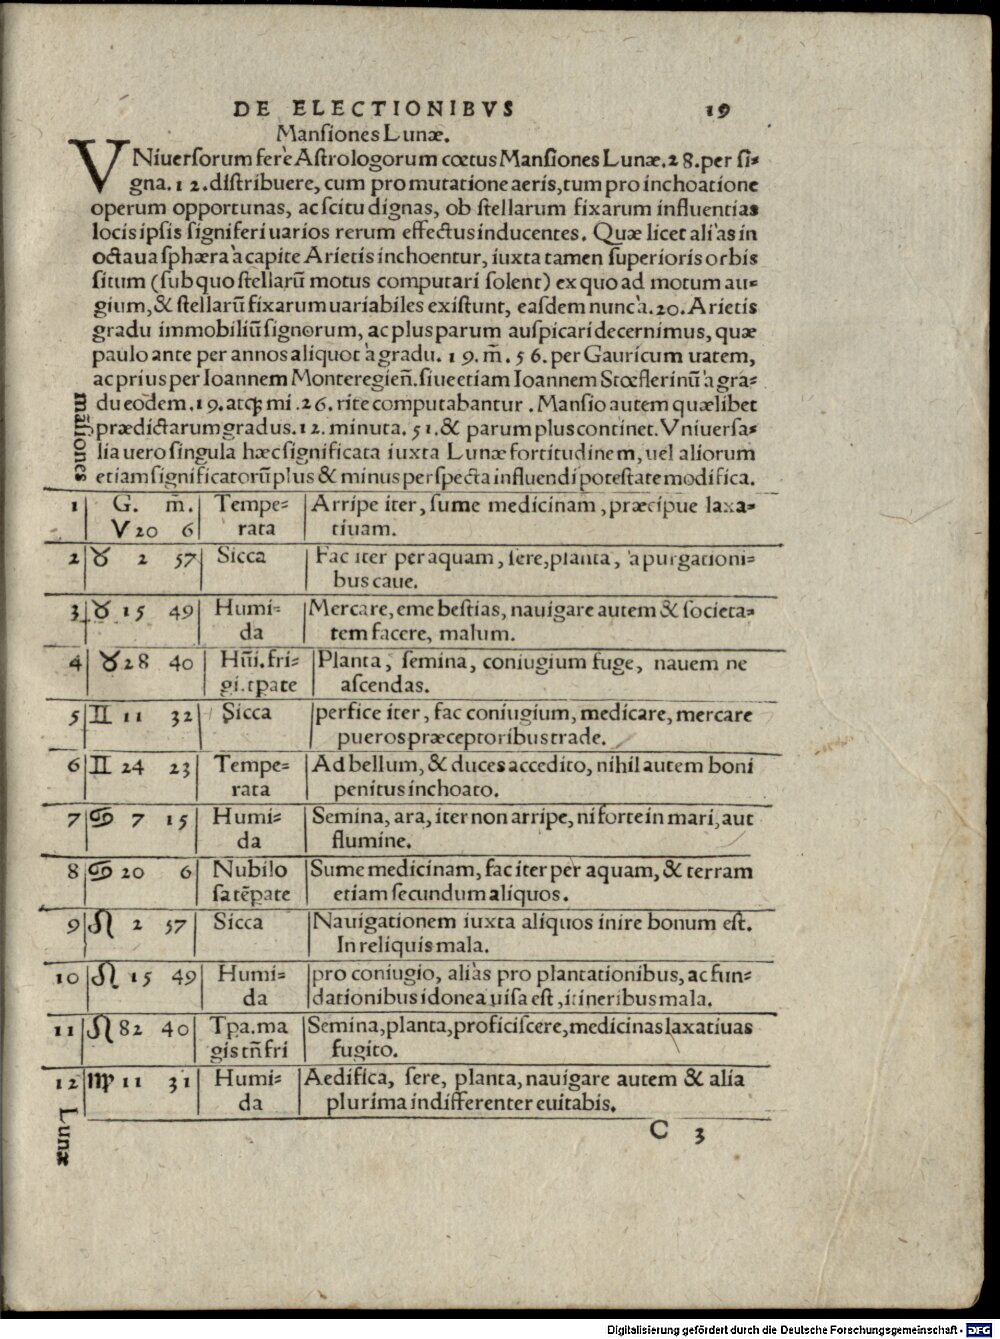 DE ELECTIONIBVS 19
Mansiones Lunæ.
VNiuersorum ferè Astrologorum cœtus Mansiones Lunæ.28.per si=
gna.12.distribuere, cum pro mutatione aeris, tum pro inchoatione
operum opportunas, ac scitu dignas, ob stellarum fixarum influentias
locis ipsis signiferi uarios rerum effectus inducentes. Quæ licet aliàs in
octaua sphæra à capite Arietis inchoentur, iuxta tamen superioris orbis
situm (sub quo stellarū motus computari solent) ex quo ad motum au=
gium, & stellarū fixarum uariabiles existunt, easdem nunc à.20. Arietis
gradu immobiliū signorum, ac plus parum auspicari decernimus, quæ
paulo ante per annos aliquot à gradu. 19. m̄. 56. per Gauricum uatem,
ac prius per Ioannem Monteregieñ. siue etiam Ioannem Stœflerinū à gra=
du eodem.19. atq; mi.26. rite computabantur. Mansio autem quælibet
prædictarum gradus.12. minuta. 51. & parum plus continet. Vniuersa=
lia uero singula hæc significata iuxta Lunæ fortitudinem, uel aliorum
etiam significatorū plus & minus perspecta influendi potestate modifica.
māsiones
1 G. m̄. Tempe= Arripe iter, sume medicinam, præcipue laxa=
V 20 6 rata tiuam.
2 ♉ 2 57 Sicca Fac iter per aquam, sere, planta, à purgationi=
bus caue.
3 ♉ 15 49 Humi= Mercare, eme bestias, nauigare autem & societa=
da tem facere, malum.
4 ♉ 28 40 Hūi.fri= Planta, semina, coniugium fuge, nauem ne
gi.tpate ascendas.
5 ♊ 11 32 Sicca perfice iter, fac coniugium, medicare, mercare
pueros præceptoribus trade.
6 ♊ 24 23 Tempe= Ad bellum, & duces accedito, nihil autem boni
rata penitus inchoato.
7 ♋ 7 15 Humi= Semina, ara, iter non arripe, ni forte in mari, aut
da flumine.
8 ♋ 20 6 Nubilo Sume medicinam, fac iter per aquam, & terram
sa tēpate etiam secundum aliquos.
9 ♌ 2 57 Sicca Nauigationem iuxta aliquos inire bonum est.
In reliquis mala.
10 ♌ 15 49 Humi= pro coniugio, aliàs pro plantationibus, ac fun=
da dationibus idonea uisa est, itineribus mala.
11 ♌ 82 40 Tpa.ma Semina, planta, proficiscere, medicinas laxatiuas
gis tñ fri fugito.
12 ♍ 11 31 Humi= Aedifica, sere, planta, nauigare autem & alia
da plurima indifferenter euitabis.
Lunæ
C 3
Digitalisierung gefördert durch die Deutsche Forschungsgemeinschaft - DFG